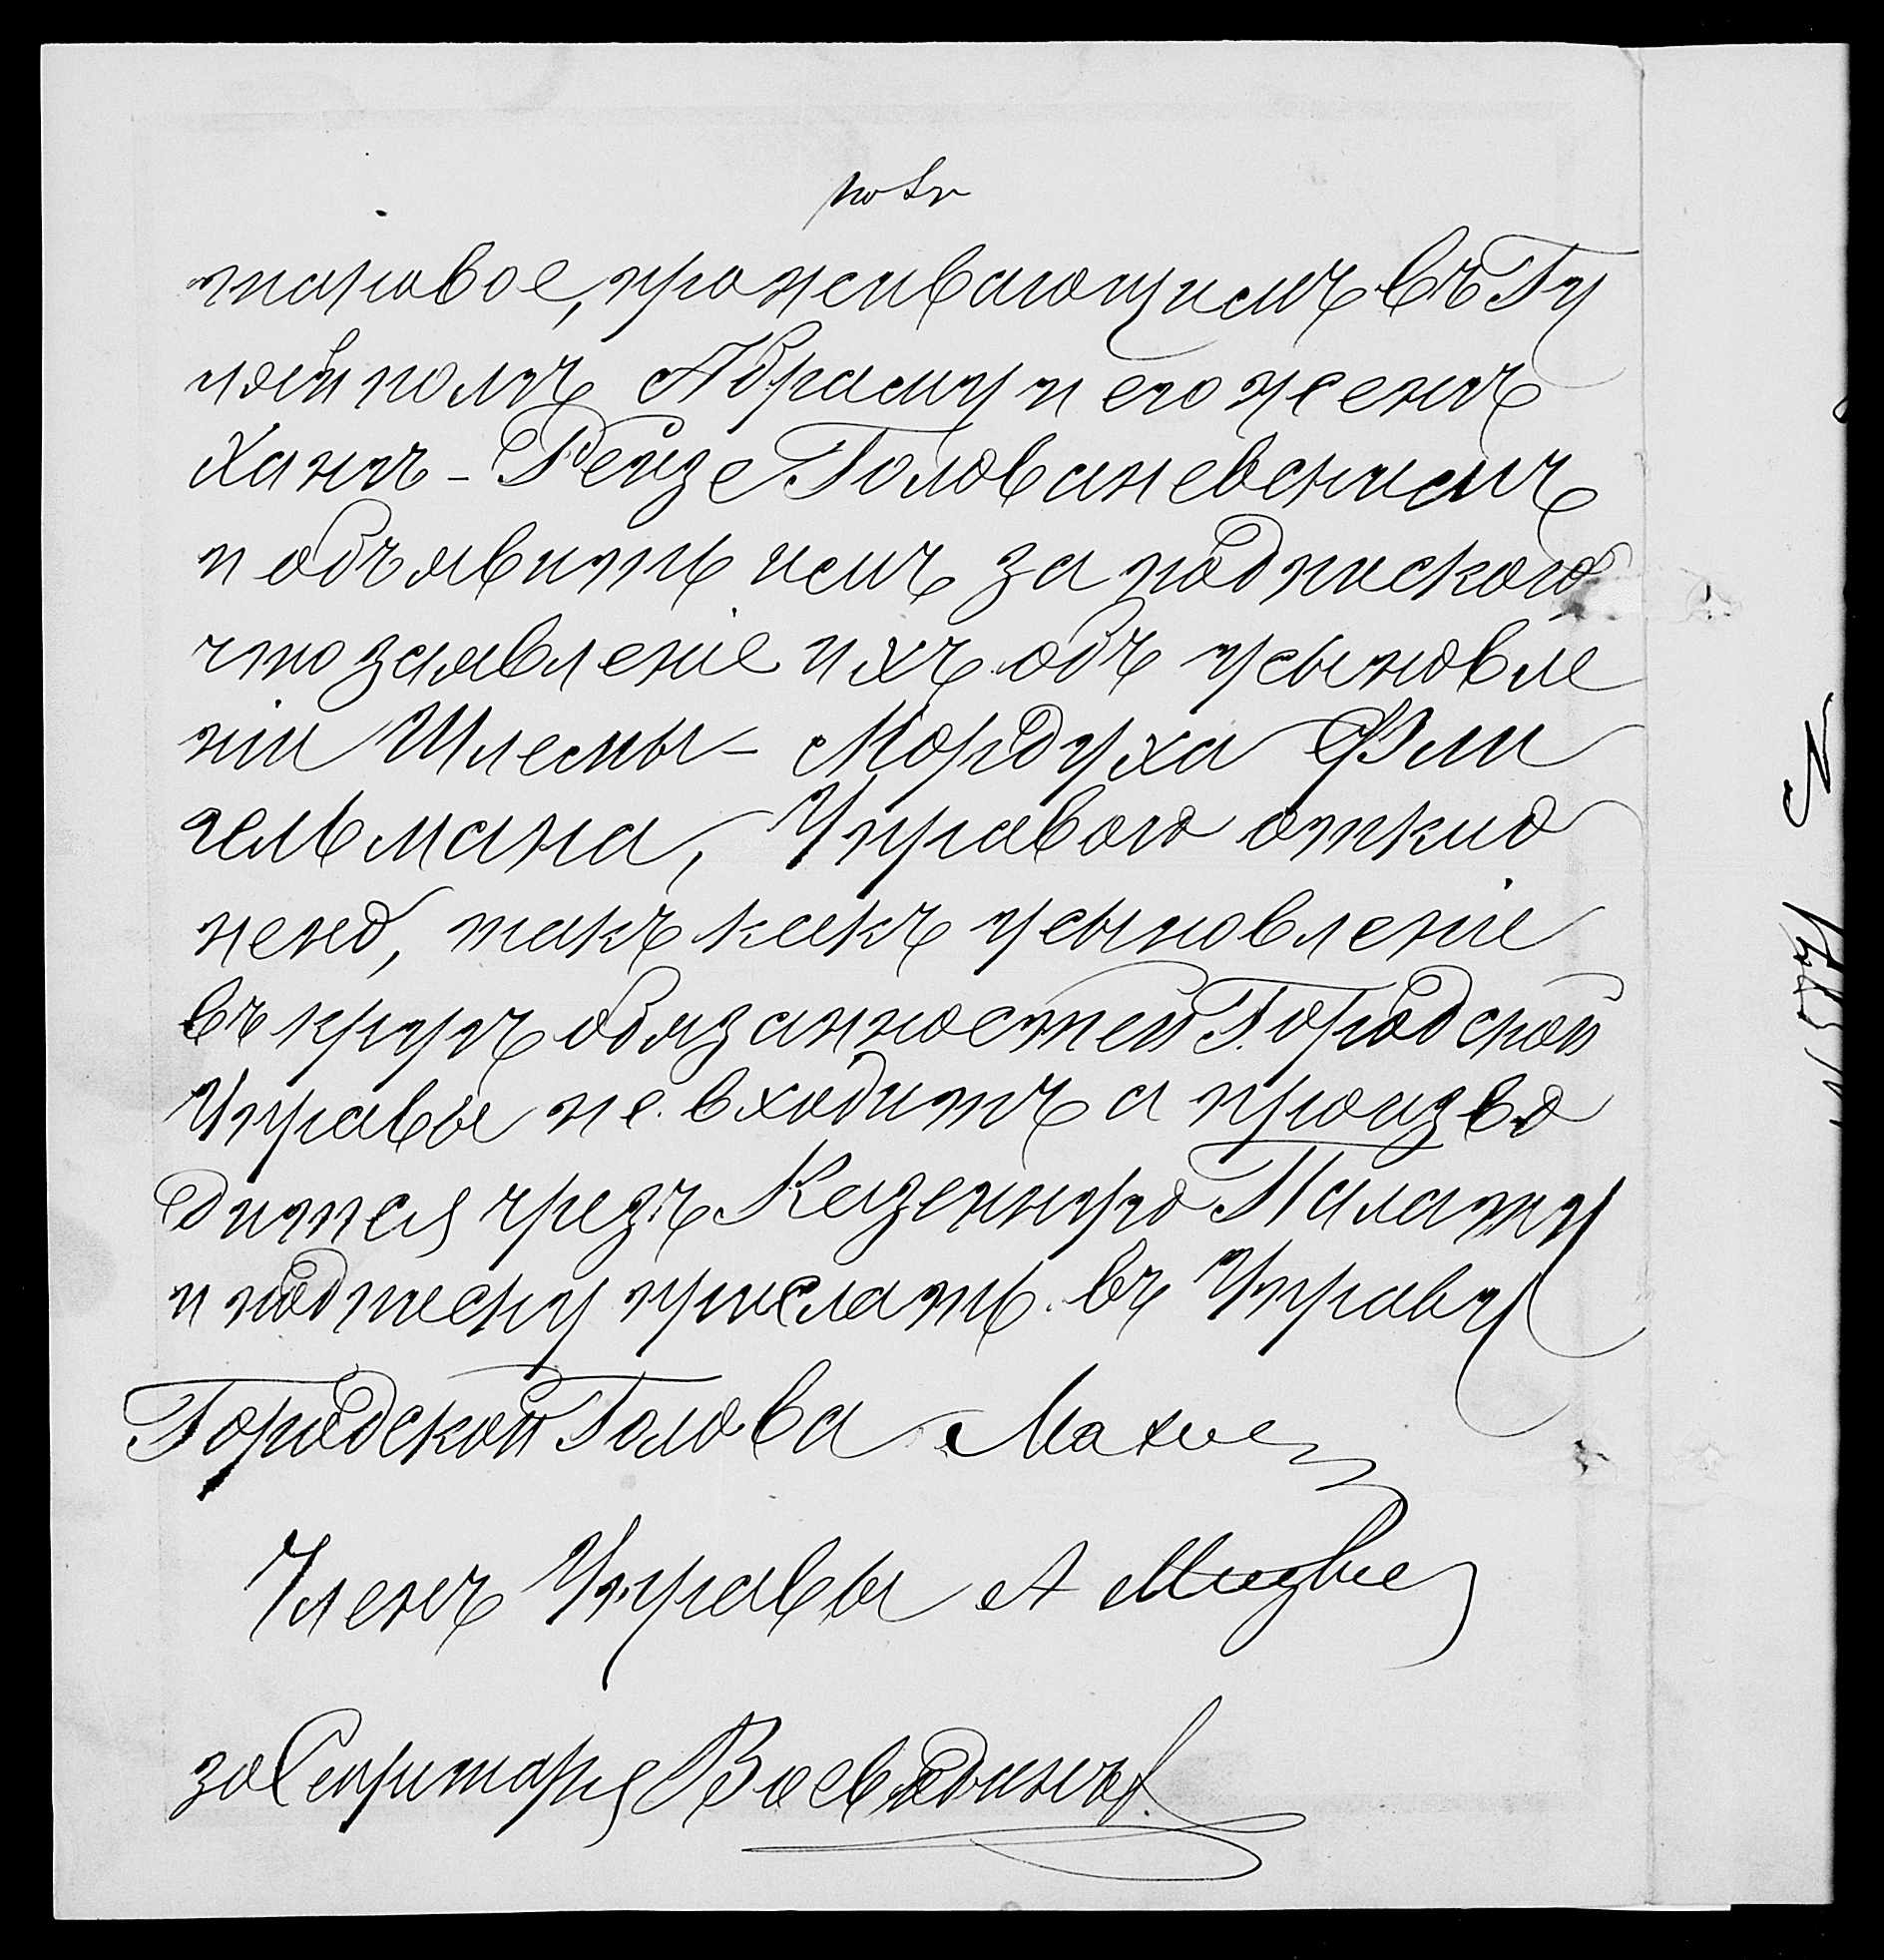 таковое, проживающимъ въ Гу
ляйполѣ Абраму и его женѣ
Ханѣ-Рейзе Голованевскимъ
и объявить имъ за подпискою
что заявленіе ихъ объ усыновле
ніи Шлемы-Мордуха Фли
гельмана, Управою откло
нено, такъ какъ усыновленіе
въ кругъ обязанностей Городской
Управы не входитъ а произво
дится чрезъ Казенную Палату
и подписку прислать въ Управу
Городской Голова
Членъ Управы А
за Секретаря
N